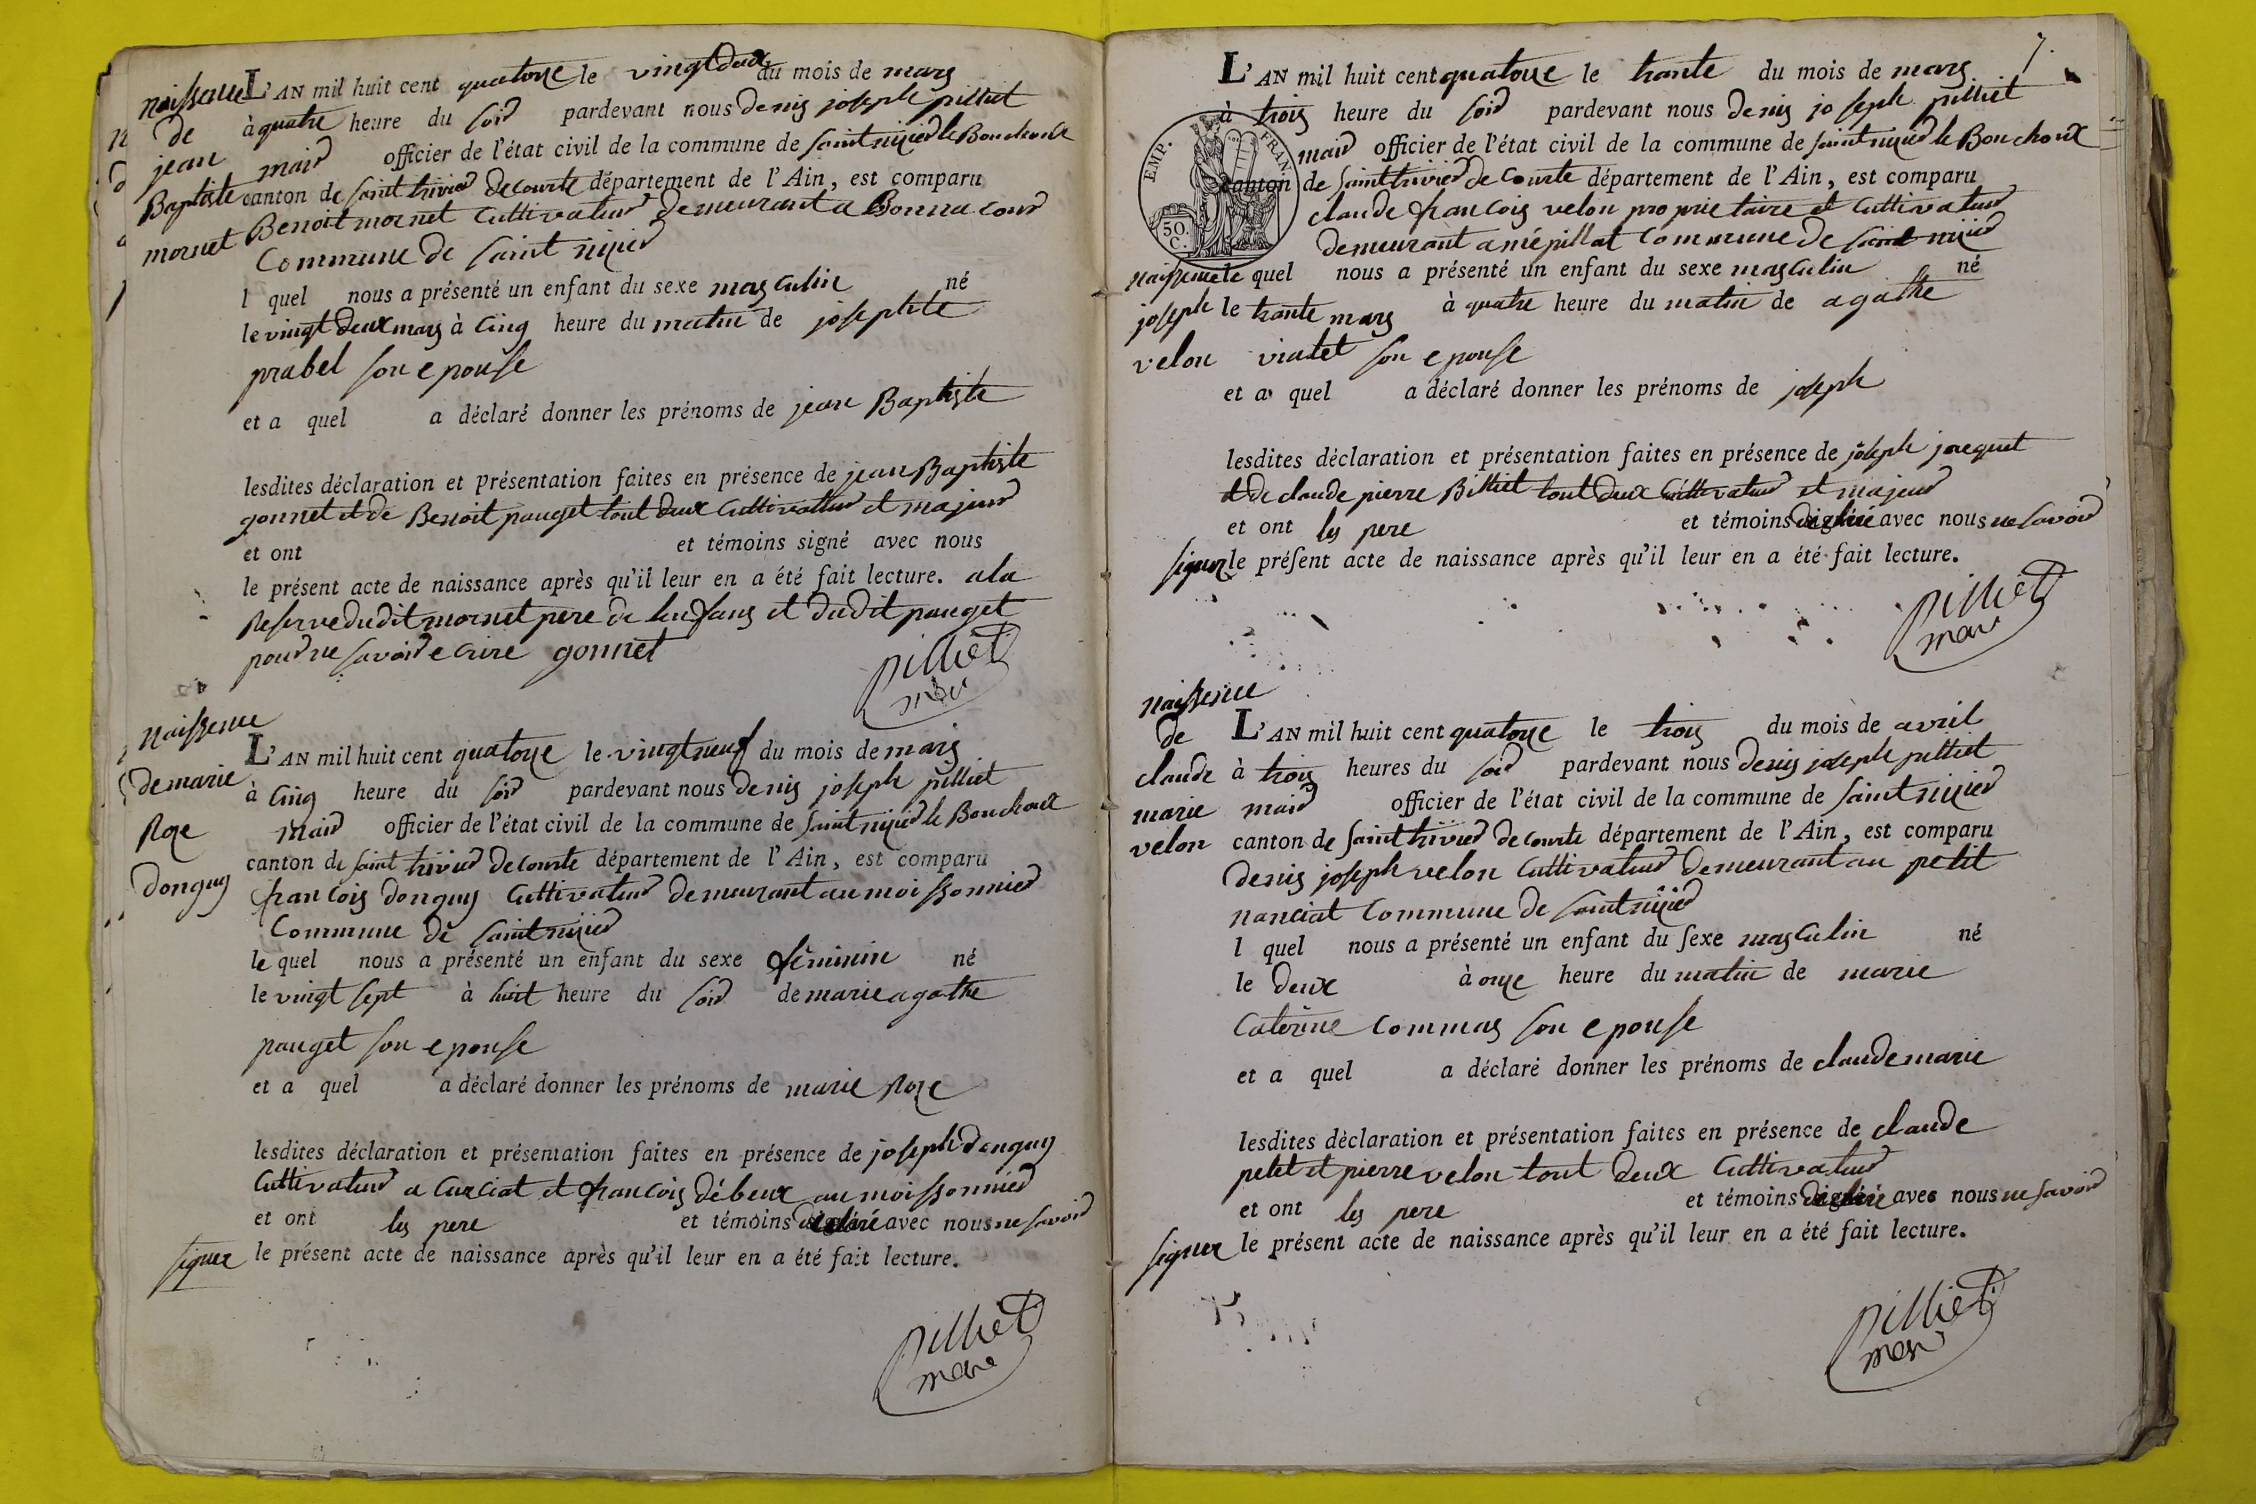 naissence
de
jean
Baptiste
mornet
L'AN mil huit cent quatorze le vingt deux du mois de mars
à quatre heure du soir pardevant nous denis joseph pilliet
maire officier de l'état civil de la commune de saint nizier le Bouchoux
canton de saint trivier de courte département de l'Ain, est comparu
Benoit mornet cultivateur demeurant a Bonna cour
Commune de saint nizier
l quel nous a présenté un enfant du sexe masculin né
le vingt deux mars à cinq heure du matin de josephte
prabel son epouse
et a quel a déclaré donner les prénoms de jean Baptiste
lesdites déclaration et présentation faites en présence de jean Baptiste
gonnet et de Benoit pauget tout deux cultivateur et majeur
et ont et témoins signé avec nous
le présent acte de naissance après qu'il leur en a été fait lecture. a la
Reserve dudit mornet pere de lenfans et dudit pauget
pour ne savoir ecrire gonnet
pilliet
maire
naissence
de marie
Roze
donguy
L'AN mil huit cent quatorze le vingt neuf du mois de mars
à cinq heure du soir pardevant nous denis joseph pilliet
maire officier de l'état civil de la commune de saint nizier le Bouchoux
canton de saint trivier de courte département de l'Ain, est comparu
francois donguy cultivateur demeurant au moissonnier
Commune de saint nizier
le quel nous a présenté un enfant du sexe féminin né
le vingt sept à huit heure du soir de marie agathe
pauget son epouse
et a quel a déclaré donner les prénoms de marie Roze
lesdites déclaration et présentation faites en présence de joseph donguy
cultivateur a Curciat et francois débeux au moissonnier
et ont les pere et témoins déclaré avec nous ne savoir
signer le présent acte de naissance après qu'il leur en a été fait lecture.
pilliet
maire
7.
L'AN mil huit cent quatorze le trante du mois de mars
à trois heure du soir pardevant nous denis joseph pilliet
maire officier de l'état civil de la commune de saint nizier le Bouchoux
canton de saint trivier de courte département de l'Ain, est comparu
claude francois velon proprietaire et cultivateur
demeurant a mépillat commune de saint nizier
EMP. FRAN.
50.
C.
naissence
joseph
velon
le quel nous a présenté un enfant du sexe masculin né
le trante mars à quatre heure du matin de agathe
viatet son epouse
et a quel a déclaré donner les prénoms de joseph
lesdites déclaration et présentation faites en présence de joseph jacquet
et de claude pierre Billiet tout deux cultivateur et majeur
et ont les pere et témoins déclaré avec nous ne savoir
signer le présent acte de naissance après qu'il leur en a été fait lecture.
pilliet
maire
naissence
de
claude
marie
velon
L'AN mil huit cent quatorze le trois du mois de avril
à trois heures du soir pardevant nous denis joseph pilliet
maire officier de l'état civil de la commune de saint nizier
canton de saint trivier de courte département de l'Ain, est comparu
denis joseph velon cultivateur demeurant au petit
nanciat commune de saint nizier
l quel nous a présenté un enfant du sexe masculin né
le deux à onze heure du matin de marie
Caterine Commas son epouse
et a quel a déclaré donner les prénoms de claude marie
lesdites déclaration et présentation faites en présence de claude
petit et pierre velon tout deux cultivateur
et ont les pere et témoins déclaré avec nous ne savoir
signer le présent acte de naissance après qu'il leur en a été fait lecture.
pilliet
maire